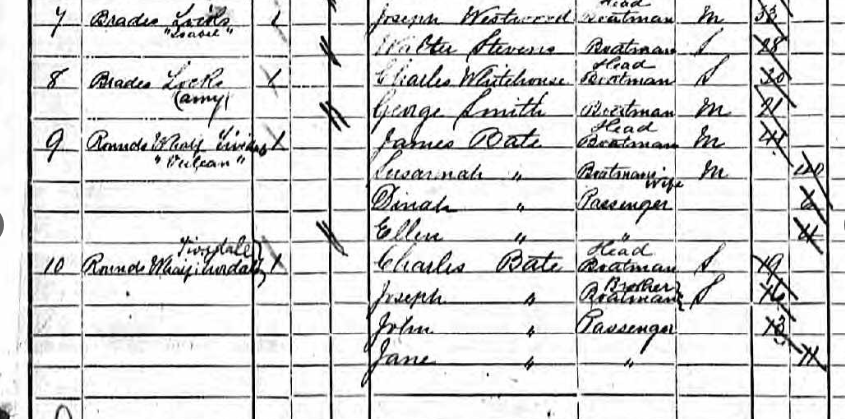 7 Brades Locks "Isabel" 1 Joseph Westwood Head Boatman M 33
Walter Stevens Boatman S 28
8 Brades Locks (Amy) 1 Charles Whitehouse Head Boatman S 30
George Smith Boatman M 21
9 Rounds Wharf "Vulcan" 1 James Bate Head Boatman M 41
Susannah " Boatmans Wife M 40
Dinah " Passenger 6
Ellen " " 4
10 Rounds Wharf Tividale 1 Charles Bate Head Boatman S 19
Joseph " Brother Boatman S 16
John " Passenger 13
Jane " " 11